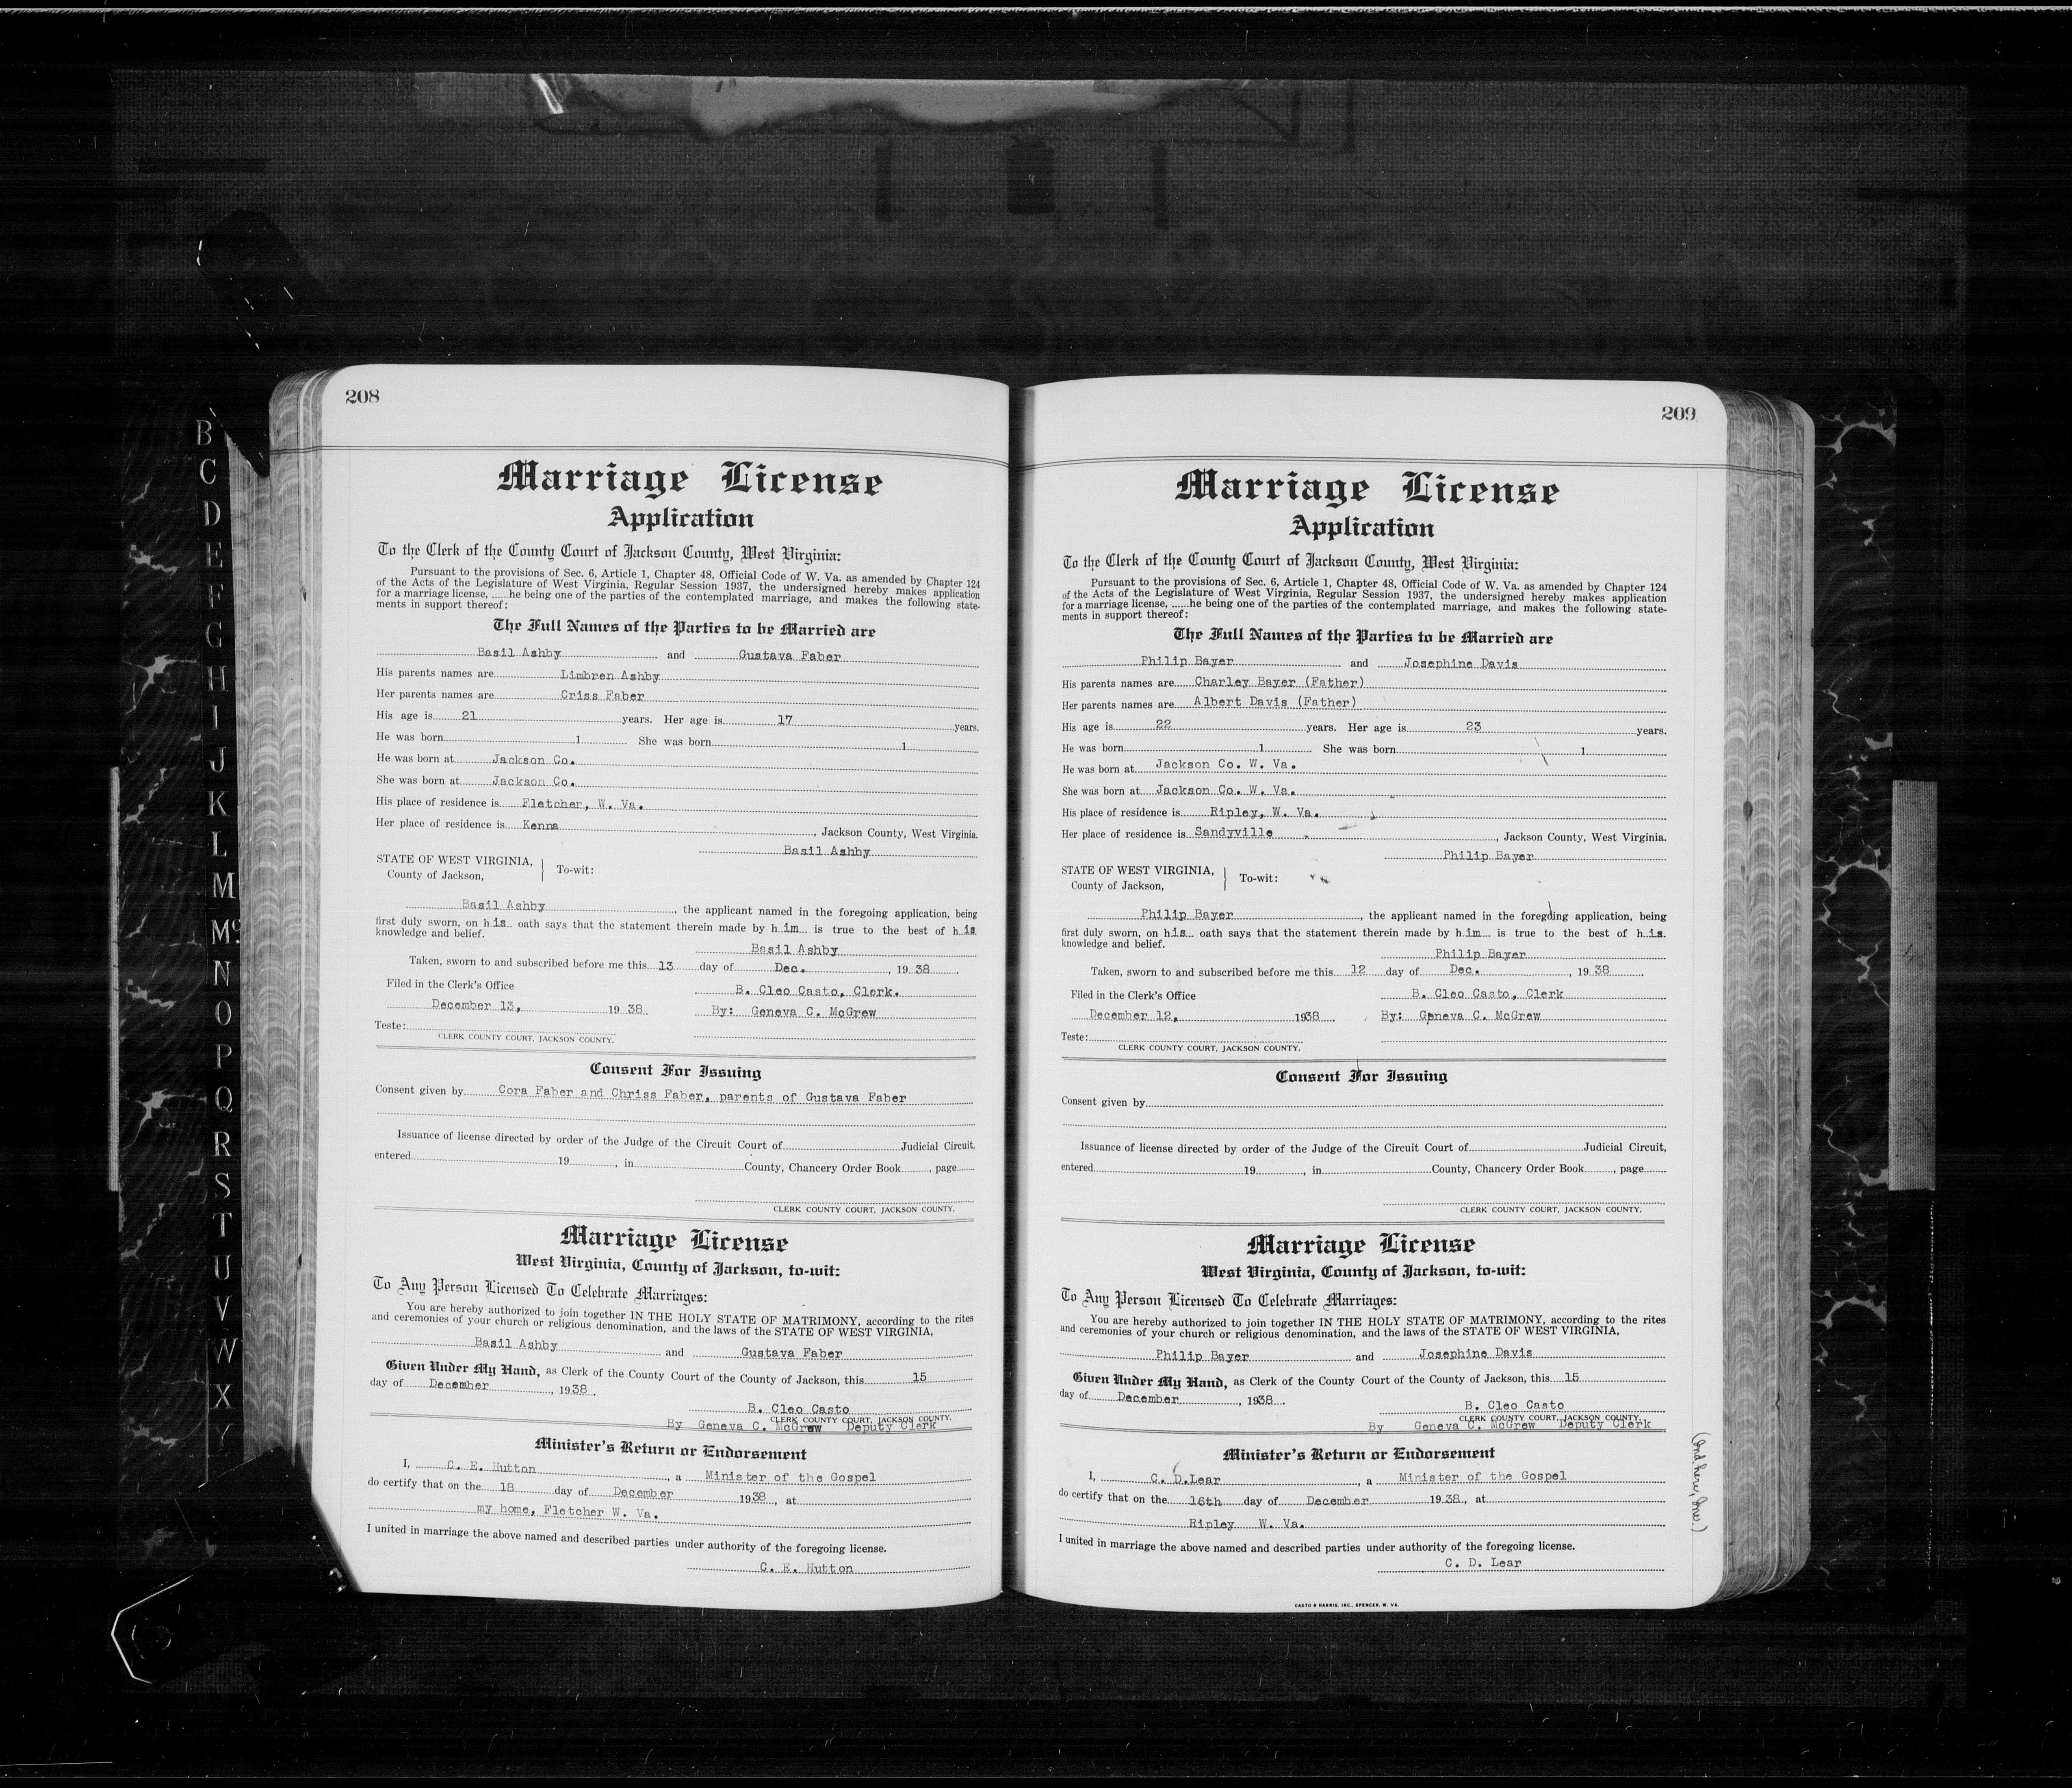 B
C
D
E
F
G
H
I
J
K
L
M
Mc
N
O
P
Q
R
S
T
U
V
W
X
Y
208
Marriage License
Application
To the Clerk of the County Court of Jackson County, West Virginia:
Pursuant to the provisions of Sec. 6, Article 1, Chapter 48, Official Code of W. Va. as amended by Chapter 124
of the Acts of the Legislature of West Virginia, Regular Session 1937, the undersigned hereby makes application
for a marriage license, ......he being one of the parties of the contemplated marriage, and makes the following state-
ments in support thereof:
The Full Names of the Parties to be Married are
Basil Ashby and Gustava Faber
His parents names are Limbren Ashby
Her parents names are Criss Faber
His age is 21 years. Her age is 17 years.
He was born 1 She was born 1
He was born at Jackson Co.
She was born at Jackson Co.
His place of residence is Fletcher, W. Va.
Her place of residence is Kenna, Jackson County, West Virginia.
Basil Ashby
STATE OF WEST VIRGINIA,
County of Jackson, To-wit:
Basil Ashby, the applicant named in the foregoing application, being
first duly sworn, on h.is.. oath says that the statement therein made by h.im... is true to the best of h..is
knowledge and belief.
Basil Ashby
Taken, sworn to and subscribed before me this 13 day of Dec., 19 38
Filed in the Clerk's Office B. Cleo Casto, Clerk.
December 13, 19 38 By: Geneva C. McGrew
Teste:
CLERK COUNTY COURT, JACKSON COUNTY.
Consent For Issuing
Consent given by Cora Faber and Chriss Faber, parents of Gustava Faber
Issuance of license directed by order of the Judge of the Circuit Court of Judicial Circuit,
entered 19, in County, Chancery Order Book, page
CLERK COUNTY COURT, JACKSON COUNTY.
Marriage License
West Virginia, County of Jackson, to-wit:
To Any Person Licensed To Celebrate Marriages:
You are hereby authorized to join together IN THE HOLY STATE OF MATRIMONY, according to the rites
and ceremonies of your church or religious denomination, and the laws of the STATE OF WEST VIRGINIA,
Basil Ashby and Gustava Faber
Given Under My Hand, as Clerk of the County Court of the County of Jackson, this 15
day of December, 1938.
B. Cleo Casto
CLERK COUNTY COURT, JACKSON COUNTY.
By Geneva C. McGrew Deputy Clerk
Minister's Return or Endorsement
I, C. E. Hutton, a Minister of the Gospel
do certify that on the 18 day of December 1938, at
my home, Fletcher W. Va.
I united in marriage the above named and described parties under authority of the foregoing license.
C. E. Hutton
209
Marriage License
Application
To the Clerk of the County Court of Jackson County, West Virginia:
Pursuant to the provisions of Sec. 6, Article 1, Chapter 48, Official Code of W. Va. as amended by Chapter 124
of the Acts of the Legislature of West Virginia, Regular Session 1937, the undersigned hereby makes application
for a marriage license, ......he being one of the parties of the contemplated marriage, and makes the following state-
ments in support thereof:
The Full Names of the Parties to be Married are
Philip Bayer and Josephine Davis
His parents names are Charley Bayer (Father)
Her parents names are Albert Davis (Father)
His age is 22 years. Her age is 23 years.
He was born 1 She was born 1
He was born at Jackson Co. W. Va.
She was born at Jackson Co. W. Va.
His place of residence is Ripley, W. Va.
Her place of residence is Sandyville, Jackson County, West Virginia.
Philip Bayer
STATE OF WEST VIRGINIA,
County of Jackson, To-wit:
Philip Bayer, the applicant named in the foregoing application, being
first duly sworn, on h.is... oath says that the statement therein made by h.im... is true to the best of h..is.
knowledge and belief.
Philip Bayer
Taken, sworn to and subscribed before me this 12 day of Dec., 19 38
Filed in the Clerk's Office B. Cleo Casto, Clerk
December 12, 1938 By: Geneva C. McGrew
Teste:
CLERK COUNTY COURT, JACKSON COUNTY.
Consent For Issuing
Consent given by
Issuance of license directed by order of the Judge of the Circuit Court of Judicial Circuit,
entered 19, in County, Chancery Order Book, page
CLERK COUNTY COURT, JACKSON COUNTY.
Marriage License
West Virginia, County of Jackson, to-wit:
To Any Person Licensed To Celebrate Marriages:
You are hereby authorized to join together IN THE HOLY STATE OF MATRIMONY, according to the rites
and ceremonies of your church or religious denomination, and the laws of the STATE OF WEST VIRGINIA,
Philip Bayer and Josephine Davis
Given Under My Hand, as Clerk of the County Court of the County of Jackson, this 15
day of December, 1938.
B. Cleo Casto
CLERK COUNTY COURT, JACKSON COUNTY.
By Geneva C. McGrew Deputy Clerk
Minister's Return or Endorsement
I, C. D. Lear, a Minister of the Gospel
do certify that on the 16th day of December 1938, at
Ripley W. Va.
I united in marriage the above named and described parties under authority of the foregoing license.
C. D. Lear
CASTO & HARRIS, INC., SPENCER, W. VA.